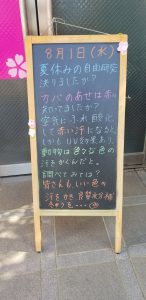 8月1日(水)
夏休みの自由研究
決りましたか？
カバのあせは赤い
知ってましたか？
空気にふれ酸化
して赤い汗になると
しかもUV効果あり
動物は色々な色の
汗をかくんだと。
調べてみては？
皆さんもいい色の
汗をかき良質水分補